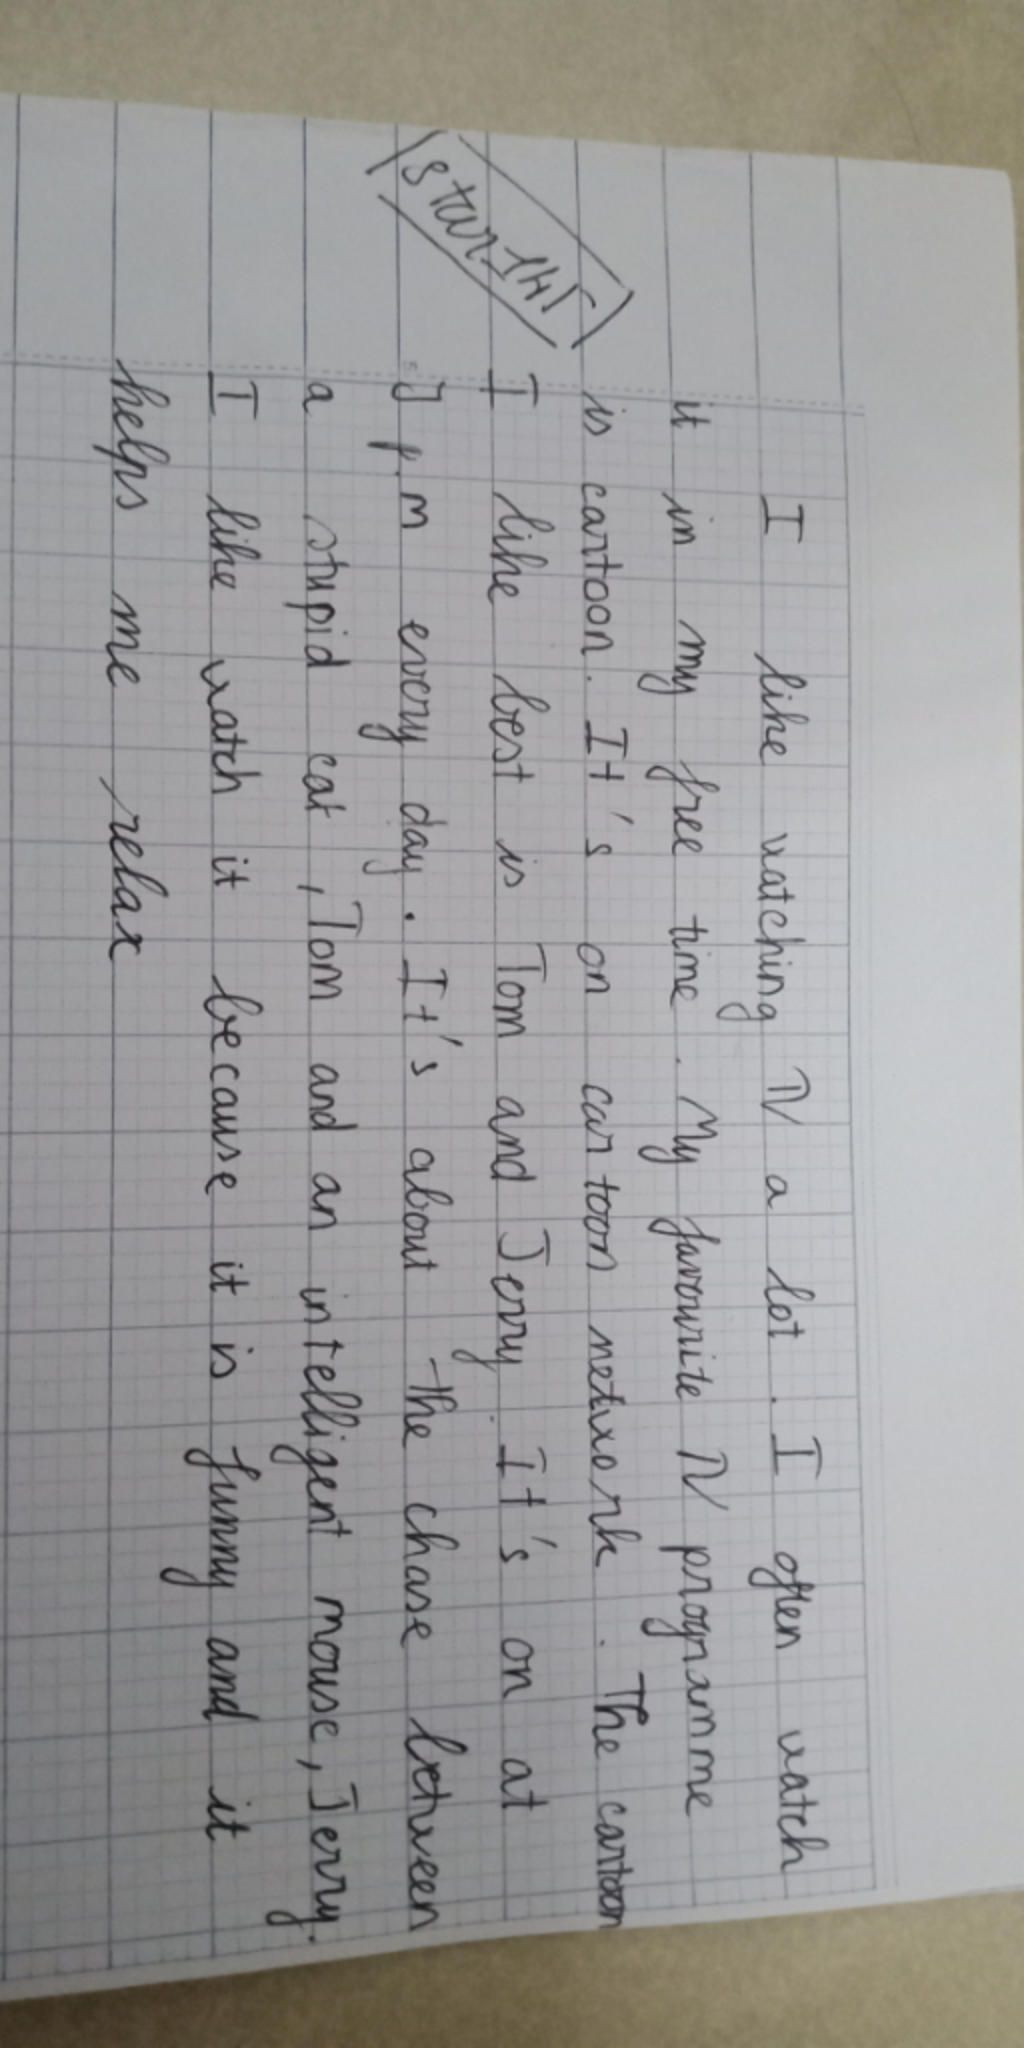 I like watching TV a lot. I often watch
it in my free time. My favourite TV programme
is cartoon. It's on cartoon network. The cartoon
I like best is Tom and Jerry. It's on at
p.m every day. It's about the chase between
a stupid cat, Tom and an intelligent mouse, Jerry.
I like watch it because it is funny and it
helps me relax